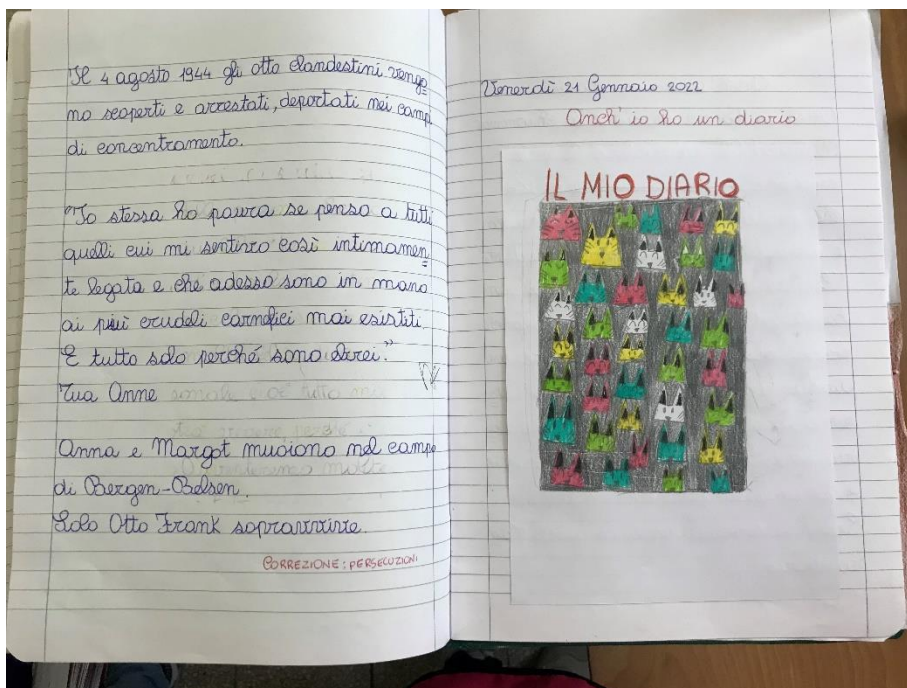 Il 4 agosto 1944 gli otto clandestini vengo=
no scoperti e arrestati, deportati nei campi
di concentramento.
"Io stessa ho paura se penso a tutti
quelli cui mi sentivo così intimamen=
te legata e che adesso sono in mano
ai più crudeli carnefici mai esistiti.
E tutto solo perché sono ebrei."
Tua Anne
Anna e Margot muoiono nel campo
di Bergen-Belsen.
Solo Otto Frank sopravvive.
CORREZIONE: PERSECUZIONI
Venerdì 21 Gennaio 2022
Anch'io ho un diario
IL MIO DIARIO